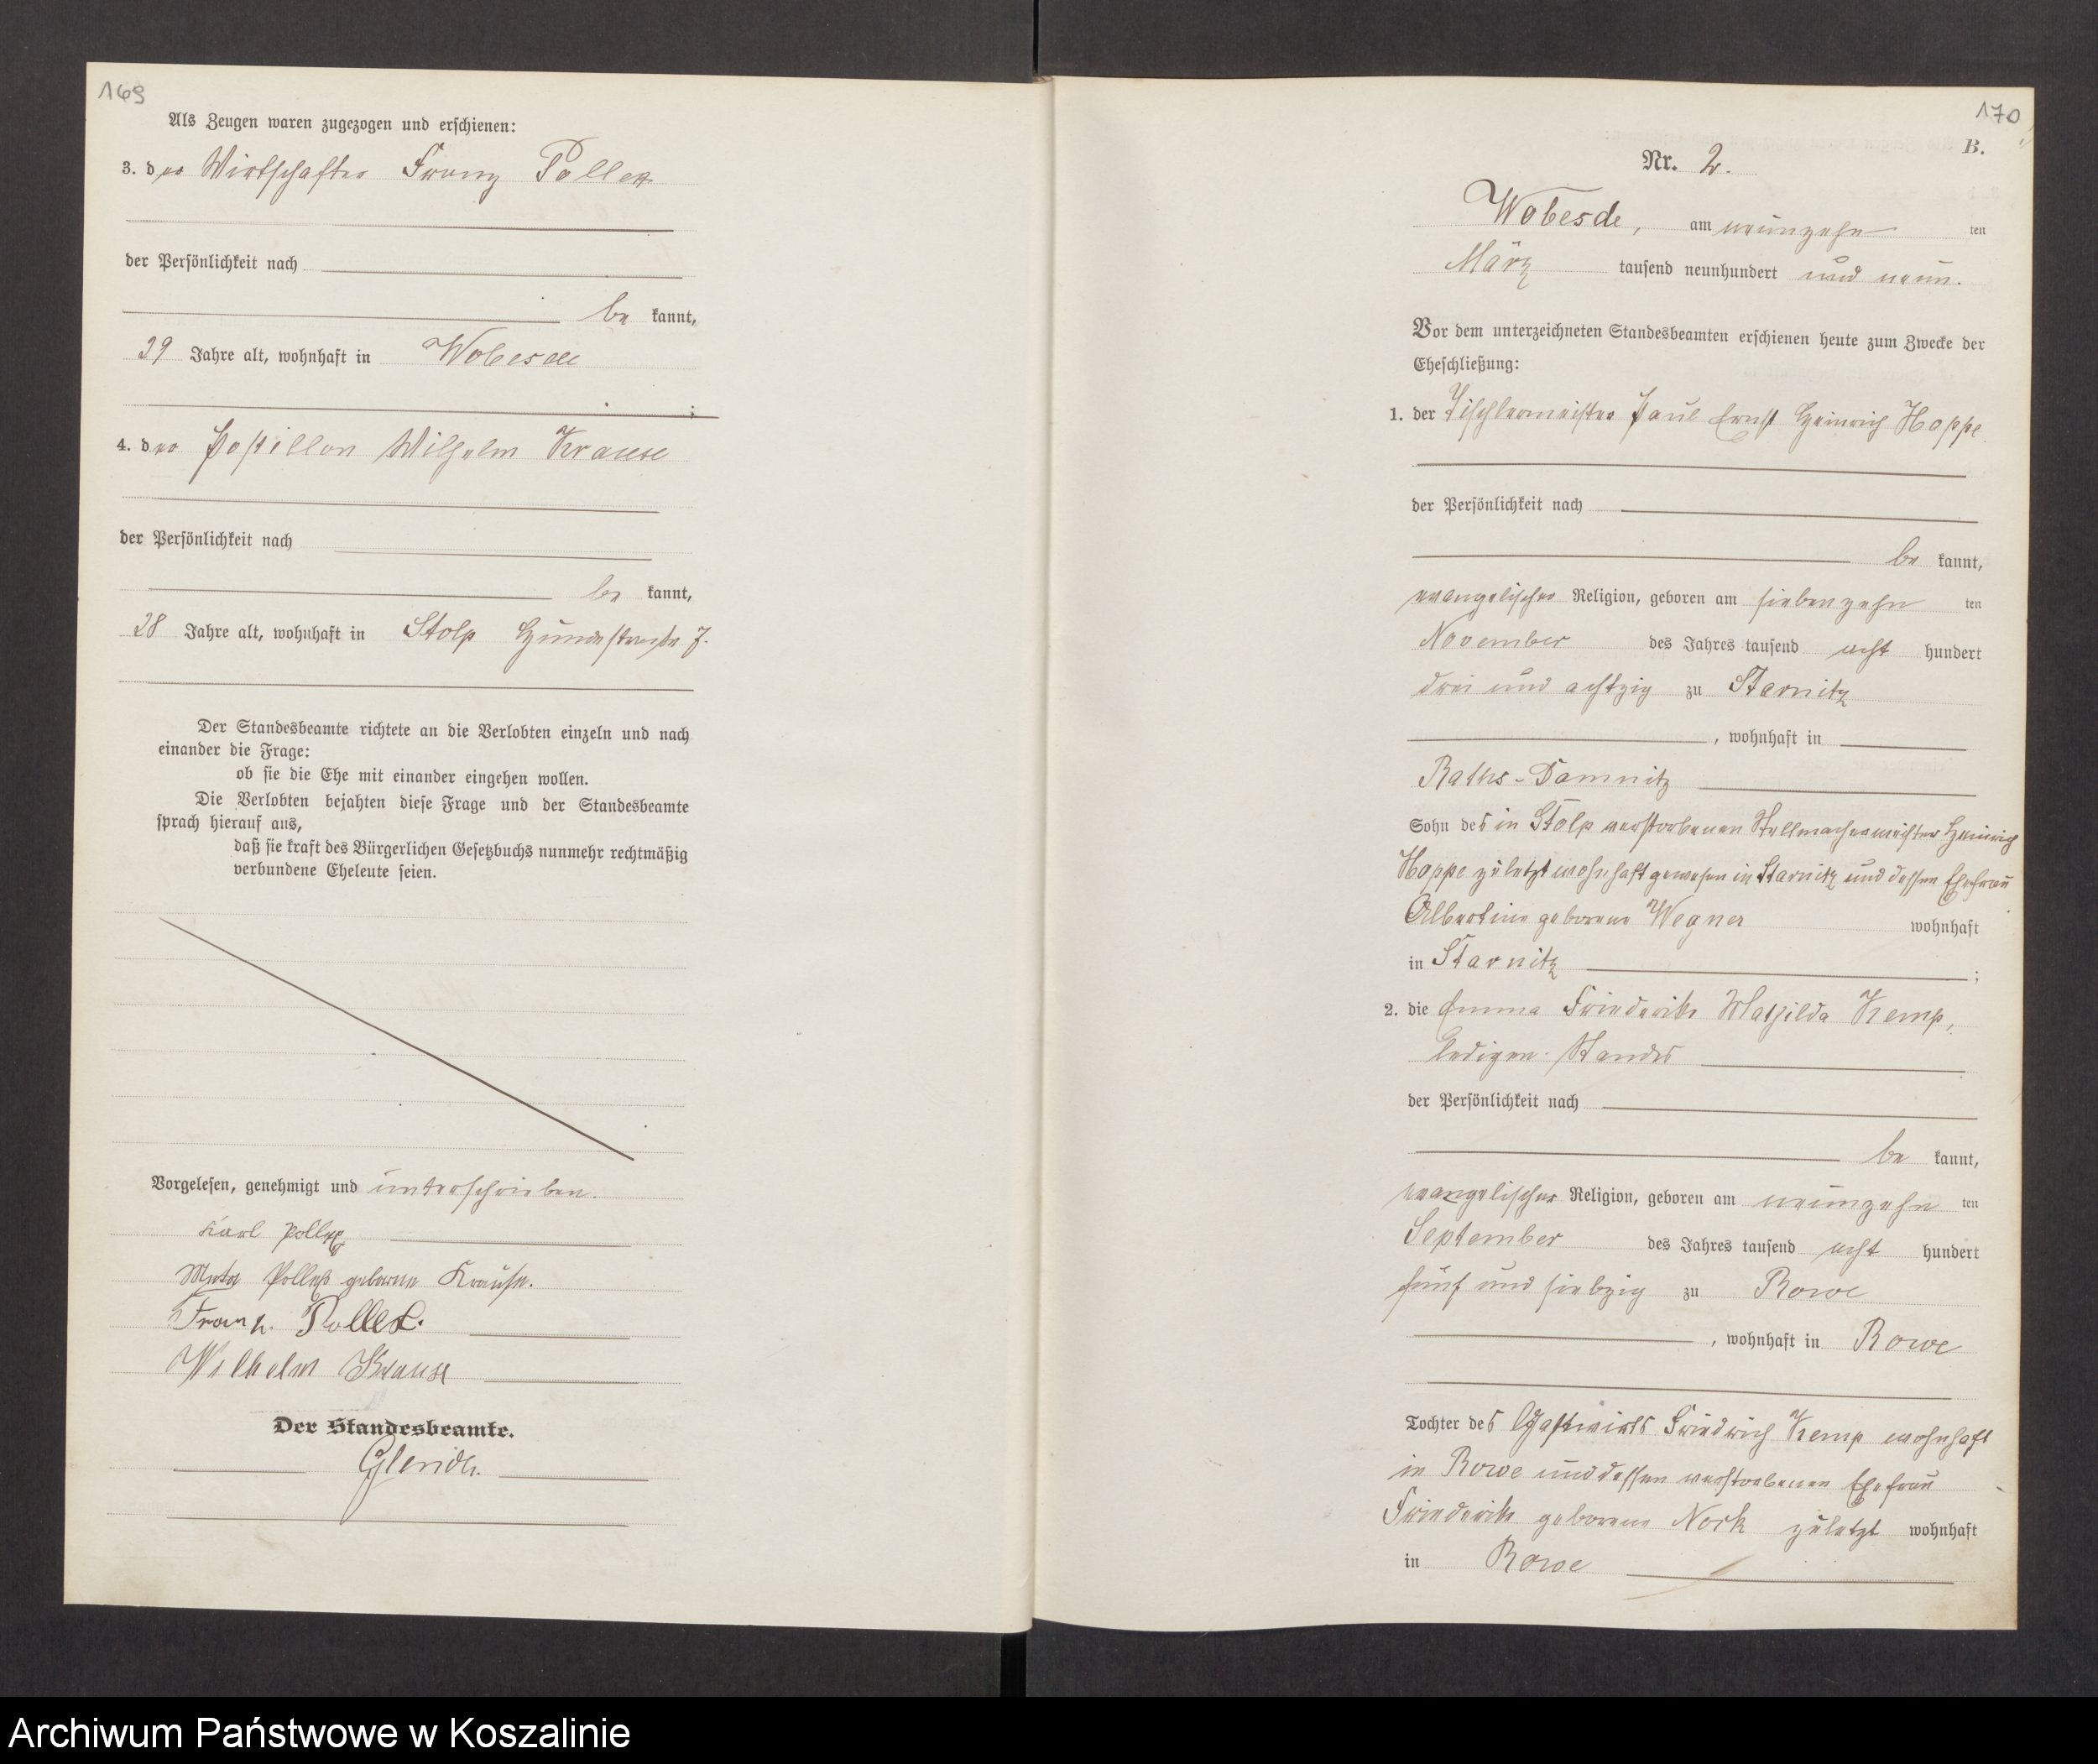 169
Als Zeugen waren zugezogen und erschienen:
3. der Wirtschafter Franz Pollex
der Persönlichkeit nach
be kannt,
29 Jahre alt, wohnhaft in Wobesde
;
4. der Postillon Wilhelm Krause
der Persönlichkeit nach
be kannt,
28 Jahre alt, wohnhaft in Stolp 7.
Der Standesbeamte richtete an die Verlobten einzeln und nach
einander die Frage:
ob sie die Ehe mit einander eingehen wollen.
Die Verlobten bejahten diese Frage und der Standesbeamte
sprach hierauf aus,
daß sie kraft des Bürgerlichen Gesetzbuchs nunmehr rechtmäßig
verbundene Eheleute seien.
Vorgelesen, genehmigt und unterschrieben.
Karl Pollex
Meta Pollex geborene Krause.
Franz Pollex.
Wilhelm Krause
Der Standesbeamte.
170
B.
Nr. 2.
Wobesde, am neunzehn ten
März tausend neunhundert und neun.
Vor dem unterzeichneten Standesbeamten erschienen heute zum Zwecke der
Eheschließung:
1. der Tischlermeister Paul Ernst Heinrich Hoppe
der Persönlichkeit nach
be kannt,
evangelischer Religion, geboren am siebenzehn ten
November des Jahres tausend acht hundert
drei und achtzig zu Starnitz
, wohnhaft in
Raths-Damnitz
Sohn des in Stolp verstorbenen Stellmachermeister Heinrich
Hoppe zuletzt wohnhaft gewesen in Starnitz und dessen Ehefrau
Albertine geborene Wegner wohnhaft
in Starnitz ;
2. die Emma Friederike Mathilda Kemp,
ledigen Standes
der Persönlichkeit nach
be kannt,
evangelischer Religion, geboren am neunzehn ten
September des Jahres tausend acht hundert
fünf und siebzig zu Rowe
, wohnhaft in Rowe
Tochter des Gastwirts Friedrich Kemp wohnhaft
in Rowe und dessen verstorbenen Ehefrau
Friederike geborene Nock zuletzt wohnhaft
in Rowe
Archiwum Państwowe w Koszalinie